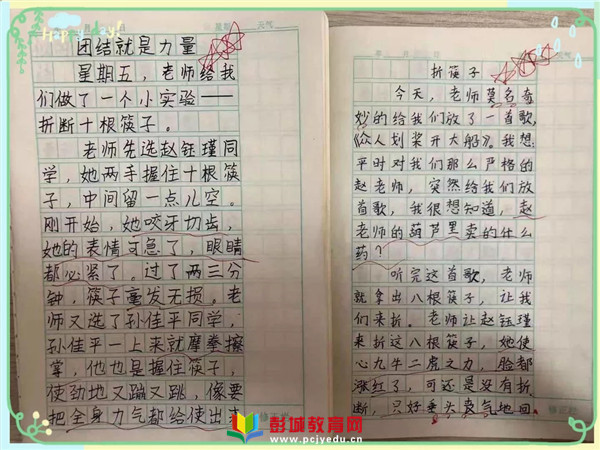 Happy day!
星期 天气
团结就是力量
星期五，老师给我
们做了一个小实验——
折断十根筷子。
老师先选赵钰瑾同
学，她两手握住十根筷
子，中间留一点儿空。
刚开始，她咬牙切齿，
她的表情可急了，眼睛
都必紧了。过了两三分
钟，筷子毫发无损。老
师又选了孙佳平同学，
孙佳平一上来就摩拳擦
掌，他也是握住筷子，
使劲地又蹦又跳，像要
把全身力气都给使出来
年 月
折筷子
今天，老师莫名奇
妙的给我们放了一首歌，
《众人划桨开大船》。我想：
平时对我们那么严格的
赵老师，突然给我们放
首歌，我很想知道，赵
老师的葫芦里卖的什么
药？
听完这首歌，老师
就拿出八根筷子，让我
们来折。老师让赵钰瑾
来折这八根筷子，她使
心九牛二虎之力，脸都
涨红了，可还是没有折
断，只好垂头丧气地回
彭城教育网
www.pcjyedu.cn